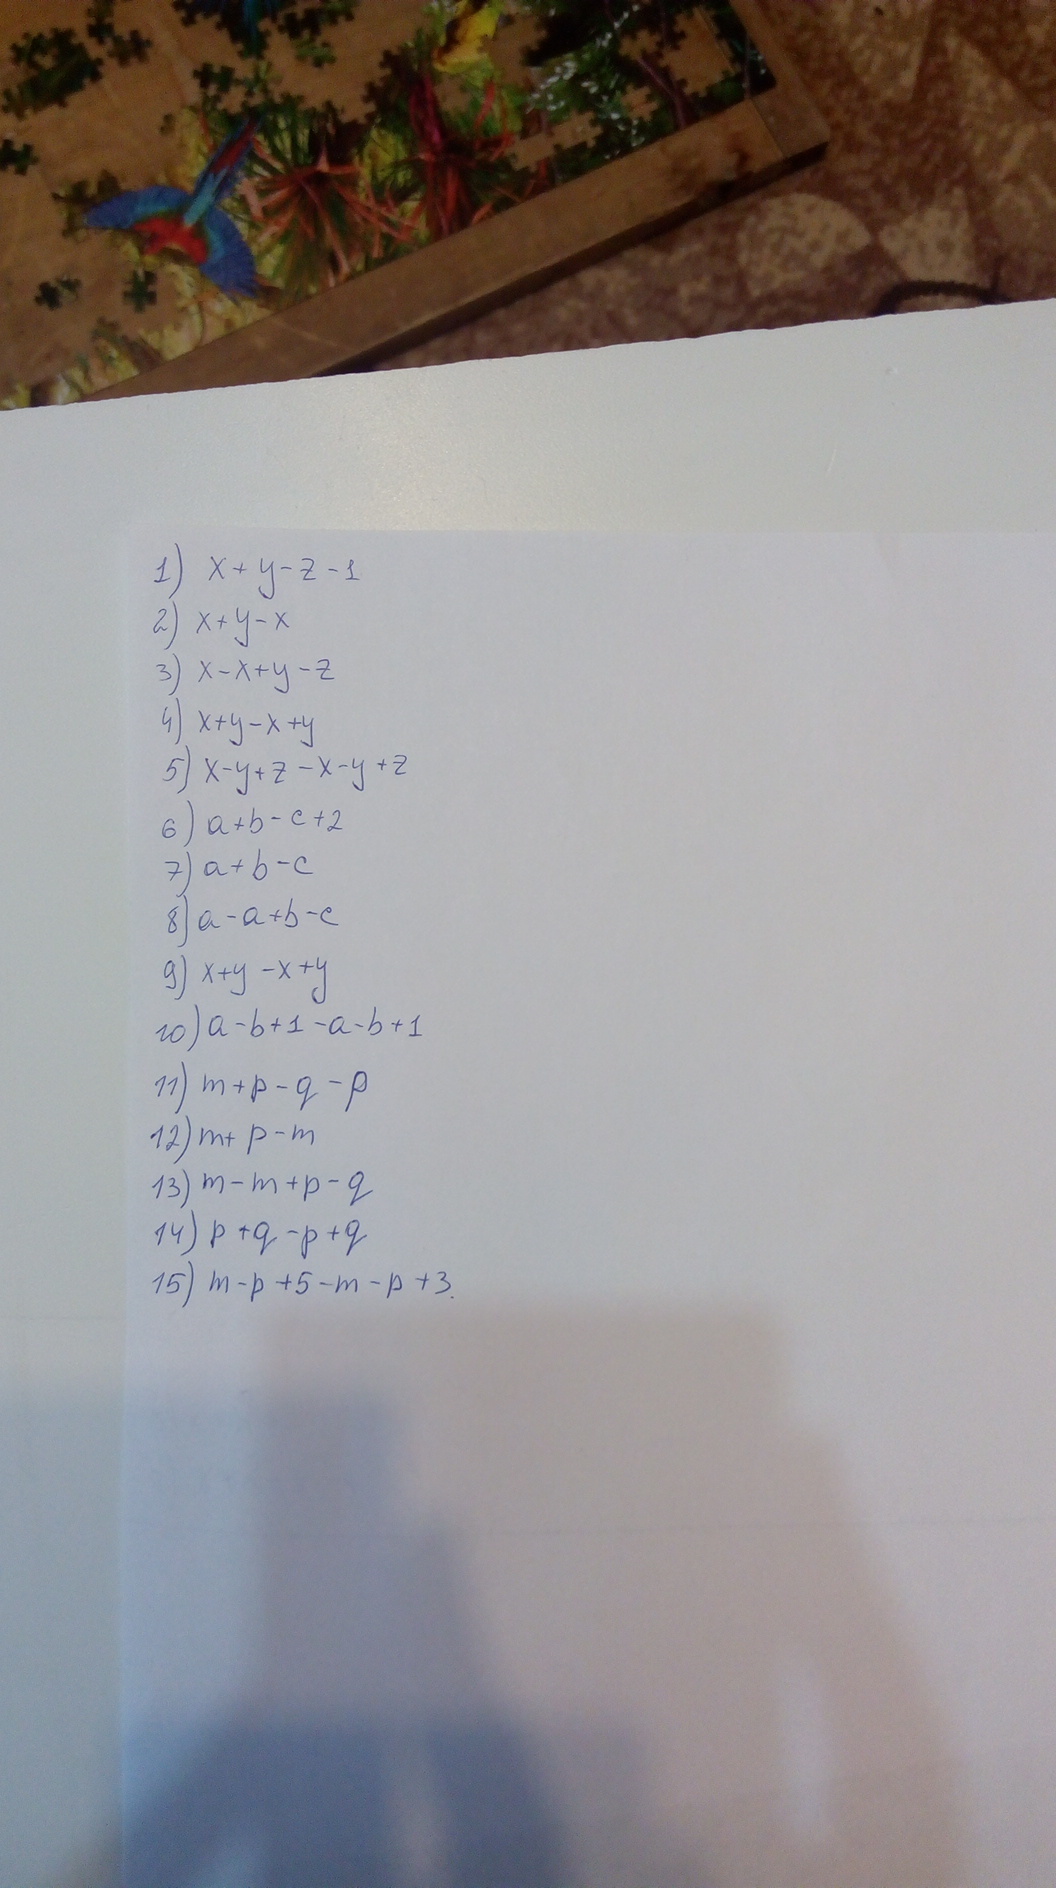 1) x+y-z-1
2) x+y-x
3) x-x+y-z
4) x+y-x+y
5) x-y+z-x-y+z
6) a+b-c+2
7) a+b-c
8) a-a+b-c
9) x+y-x+y
10) a-b+1-a-b+1
11) m+p-q-p
12) m+p-m
13) m-m+p-q
14) p+q-p+q
15) m-p+5-m-p+3.